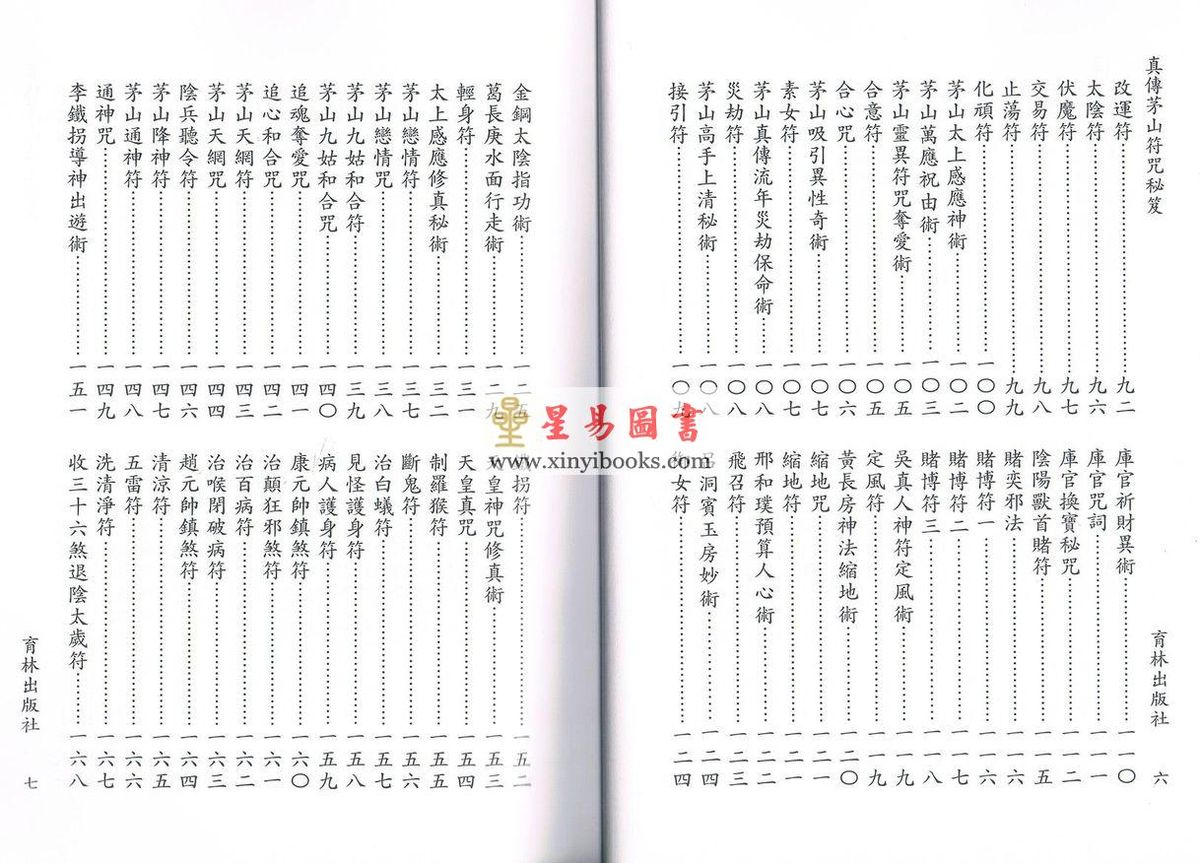 真傳茅山符咒秘笈
改運符……九二
太陰符……九六
伏魔符……九七
交易符……九八
止蕩符……九九
化頑符……一〇〇
茅山太上感應神術……一〇二
茅山萬應祝由術……一〇三
茅山靈異符咒奪愛術……一〇五
合意符……一〇五
合心咒……一〇六
茅山吸引異性奇術……一〇七
素女符……一〇七
茅山真傳流年災劫保命術……一〇八
災劫符……一〇八
茅山高手上清秘術……一〇八
接引符……一〇九
庫官祈財異術……一一〇
庫官咒詞……一一一
庫官換寶秘咒……一一二
陰陽獸首賭符……一一五
賭奕邪法……一一六
賭博符一……一一六
賭博符二……一一七
賭博符三……一一八
吳真人神符定風術……一一九
定風符……一一九
黃長房神法縮地術……一二〇
縮地咒……一二一
縮地符……一二一
邢和璞預算人心術……一二二
飛召符……一二三
洞賓玉房妙術……一二四
女符……一二四
育林出版社
六
金鋼太陰指功術……一二五
葛長庚水面行走術……一二九
輕身符……一三一
太上感應修真秘術……一三二
茅山戀情符……一三七
茅山戀情咒……一三八
茅山九姑和合符……一三九
茅山九姑和合咒……一四〇
追魂奪愛咒……一四一
追心和合咒……一四二
茅山天網符……一四三
茅山天網咒……一四四
陰兵聽令符……一四六
茅山降神符……一四七
茅山通神符……一四八
通神咒……一四九
李鐵拐導神出遊術……一五一
拐符……一五二
皇神咒修真術……一五三
天皇真咒……一五四
制羅猴符……一五五
斷鬼符……一五六
治白蟻符……一五七
見怪護身符……一五八
病人護身符……一五九
康元帥鎮煞符……一六〇
治顛狂邪煞符……一六一
治百病符……一六二
治喉閉破病符……一六三
趙元帥鎮煞符……一六四
清涼符……一六五
五雷符……一六六
洗清淨符……一六七
收三十六煞退陰太歲符……一六八
育林出版社
七
星易圖書
www.xinyibooks.com